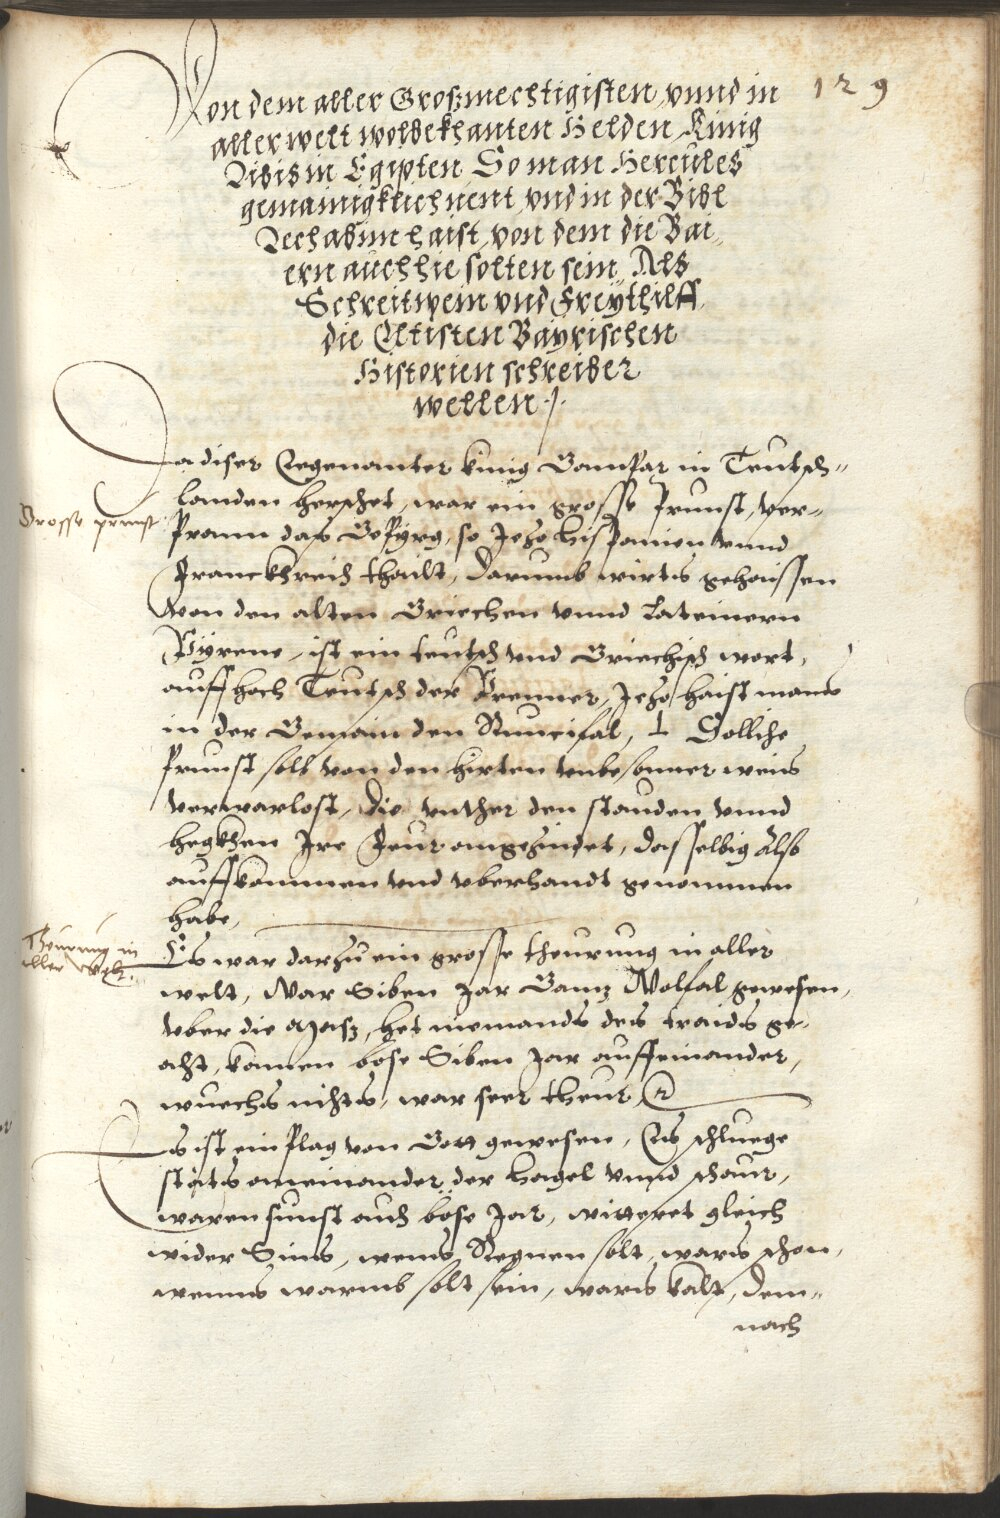 129
Von dem aller Großmechtigisten, vnnd in
aller welt wolbekhanten Helden Künig
Libis in Egipten So man Hercules
gemainigklich nent, vnd in der Bibl
Lechabim haist, von dem die Bai„
ern auch hie solten sein, Als
Schreitwein vnd Freythilff,
die Eltisten Bayrischen
Historien schreiber
wellen ./.
Da diser Zegenanter künig Gampar in Teutsch„
landen herschet, war ein grosse prunst, ver„
Grosse prunst
prann das Gepyrg, so Jezo hispanien vnnd
Franckhreich thailt, darumb wirts gehaissen
von den alten Griechen vnnd Lateinern
Pÿrene, ist ein teutsch vnd Griechisch wort,
auff hoch Teutsch der Prenner, Jezo haist mans
in der Gemain den Runcifal, Solliche
prunst soll von den hirten vnbesonner weis
verwarlost, die vnther den stauden vnnd
hegkhen Jre Feur angezindet, dasselbig also
auffkommen vnd vberhandt genommen
habe,
Theurung in
aller Welt.
Es war darzu ein grosse theurung in aller
welt, War Siben Jar Ganz Wolfal gewesen,
vber die Masz, het niemands des traids ge„
acht, kamen böse Siben Jar auffeinander,
wuechs nichts, war seer theur
Es ist ein plag von Gott gewesen, Es schluege
stäts aneinander der hagel vnnd schaur,
waren sunst auch böse Jar, wittert gleich
wider Sins, wens Regnen solt, wars schon,
wenns warmb solt sein, wars kalt, dem„
nach